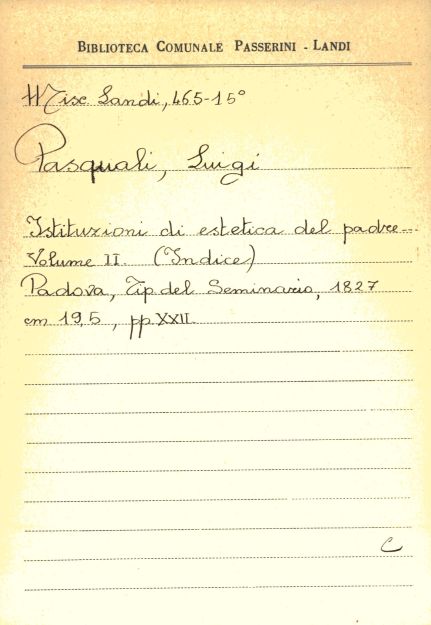 BIBLIOTECA COMUNALE PASSERINI - LANDI
Misc Landi, 465-15°
Pasquali, Luigi
Istituzioni di estetica del padre---
Volume II. (Indice)
Padova, Tip. del Seminario, 1827
cm 19,5, pp. XXII.
C